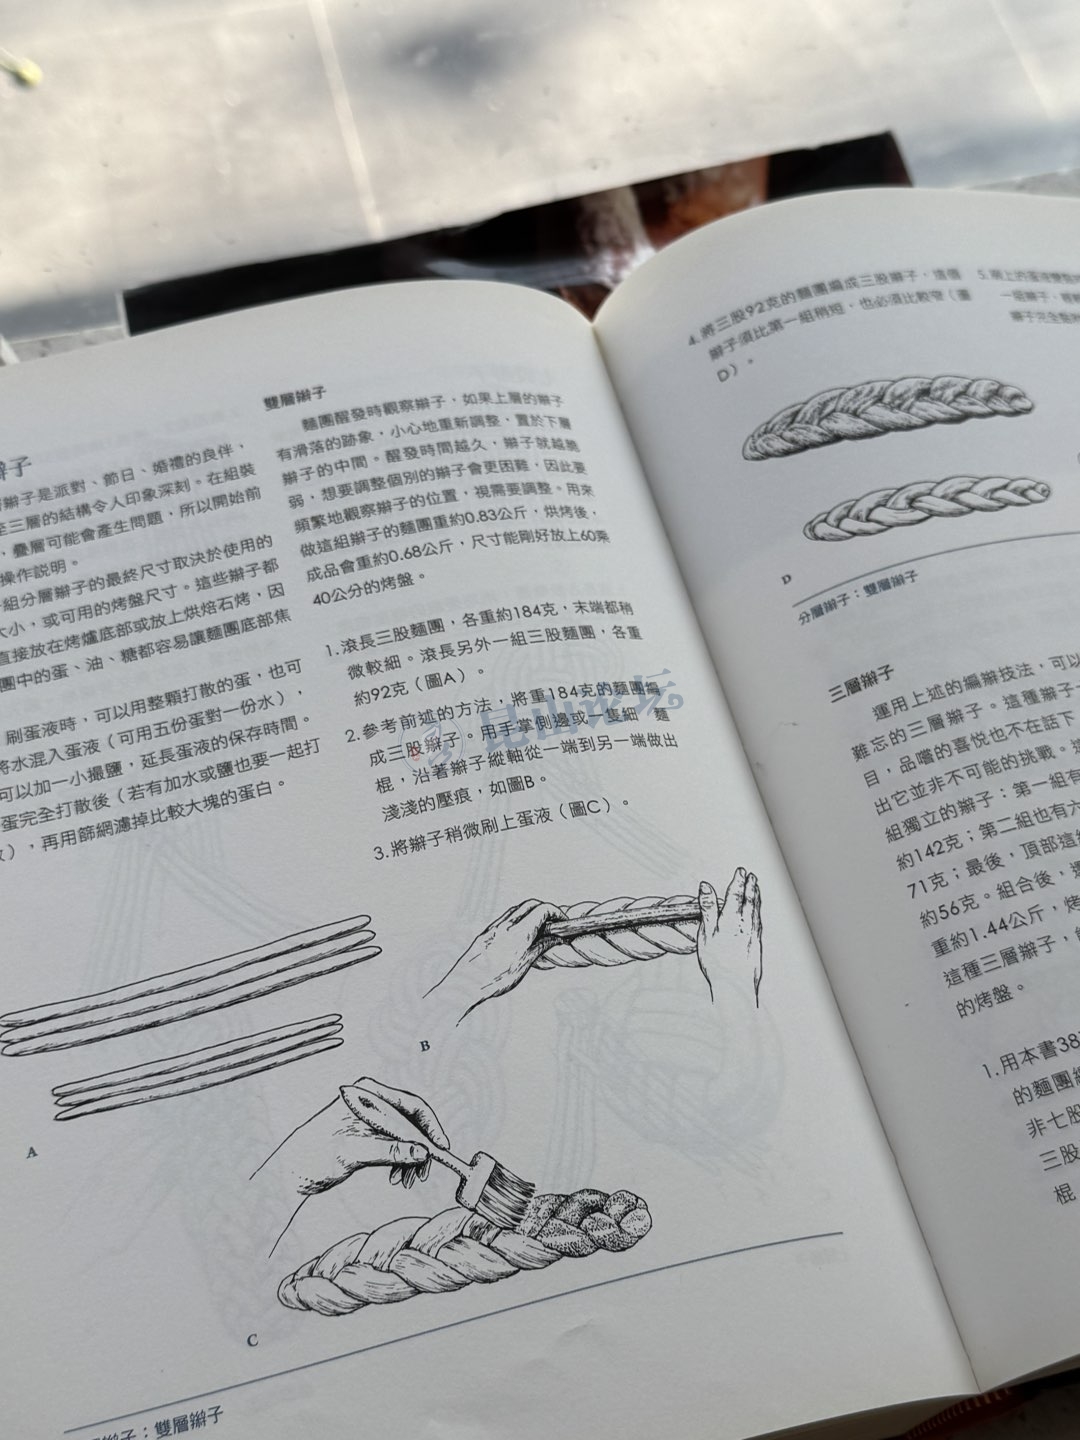 辮子
辮子是派對、節日、婚禮的良伴，
至三層的結構令人印象深刻。在組裝
，疊層可能會產生問題，所以開始前
操作説明。
組分層辮子的最終尺寸取決於使用的
大小，或可用的烤盤尺寸。這些辮子都
直接放在烤爐底部或放上烘焙石烤，因
團中的蛋、油、糖都容易讓麵團底部焦
刷蛋液時，可以用整顆打散的蛋，也可
將水混入蛋液（可用五份蛋對一份水），
可以加一小撮鹽，延長蛋液的保存時間。
蛋完全打散後（若有加水或鹽也要一起打
），再用篩網濾掉比較大塊的蛋白。
雙層辮子
麵團醒發時觀察辮子，如果上層的辮子
有滑落的跡象，小心地重新調整，置於下層
辮子的中間。醒發時間越久，辮子就越脆
弱，想要調整個別的辮子會更困難，因此要
頻繁地觀察辮子的位置，視需要調整。用來
做這組辮子的麵團重約0.83公斤，烘烤後，
成品會重約0.68公斤，尺寸能剛好放上60乘
40公分的烤盤。
1.滾長三股麵團，各重約184克，末端都稍
微較細。滾長另外一組三股麵團，各重
約92克（圖A）。
2.參考前述的方法，將重184克的麵團編
成三股辮子。用手掌側邊或一隻細 麵
棍，沿著辮子縱軸從一端到另一端做出
淺淺的壓痕，如圖B。
3.將辮子稍微刷上蛋液（圖C）。
昆山论坛
A
B
C
辮子：雙層辮子
4.將三股92克的麵團編成三股辮子，這個
辮子須比第一組稍短，也必須比較窄（圖
D）。
5.刷上的蛋液
一組辮子，
辮子完全
D
分層辮子：雙層辮子
三層辮子
運用上述的編辮技法，可以
難忘的三層辮子。這種辮子
目，品嚐的喜悅也不在話下
出它並非不可能的挑戰。
組獨立的辮子：第一組有
約142克；第二組也有六
71克；最後，頂部這
約56克。組合後，
重約1.44公斤，烤
這種三層辮子，
的烤盤。
1.用本書38
的麵團
非七股
三股
棍